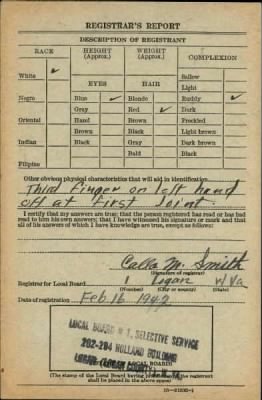 REGISTRAR'S REPORT
DESCRIPTION OF REGISTRANT
RACE HEIGHT (Approx.) WEIGHT (Approx.) COMPLEXION
White ✓ Sallow
EYES HAIR Light
Negro Blue ✓ Blonde Ruddy ✓
Gray Red ✓ Dark
Oriental Hazel Brown Freckled
Brown Black Light brown
Indian Black Gray Dark brown
Bald Black
Filipino
Other obvious physical characteristics that will aid in identification
Third finger on left hand
off at first joint.
I certify that my answers are true; that the person registered has read or has had
read to him his own answers; that I have witnessed his signature or mark and that
all of his answers of which I have knowledge are true, except as follows:
Calla M. Smith
(Signature of registrar)
Registrar for Local Board 1 Logan W Va
(Number) (City or county) (State)
Date of registration Feb. 16 1942
LOCAL BOARD # 1, SELECTIVE SERVICE
202-204 HOLLAND BUILDING
LOGAN (LOGAN COUNTY), W. VA.
(The stamp of the Local Board having jurisdiction of the registrant
shall be placed in the above space)